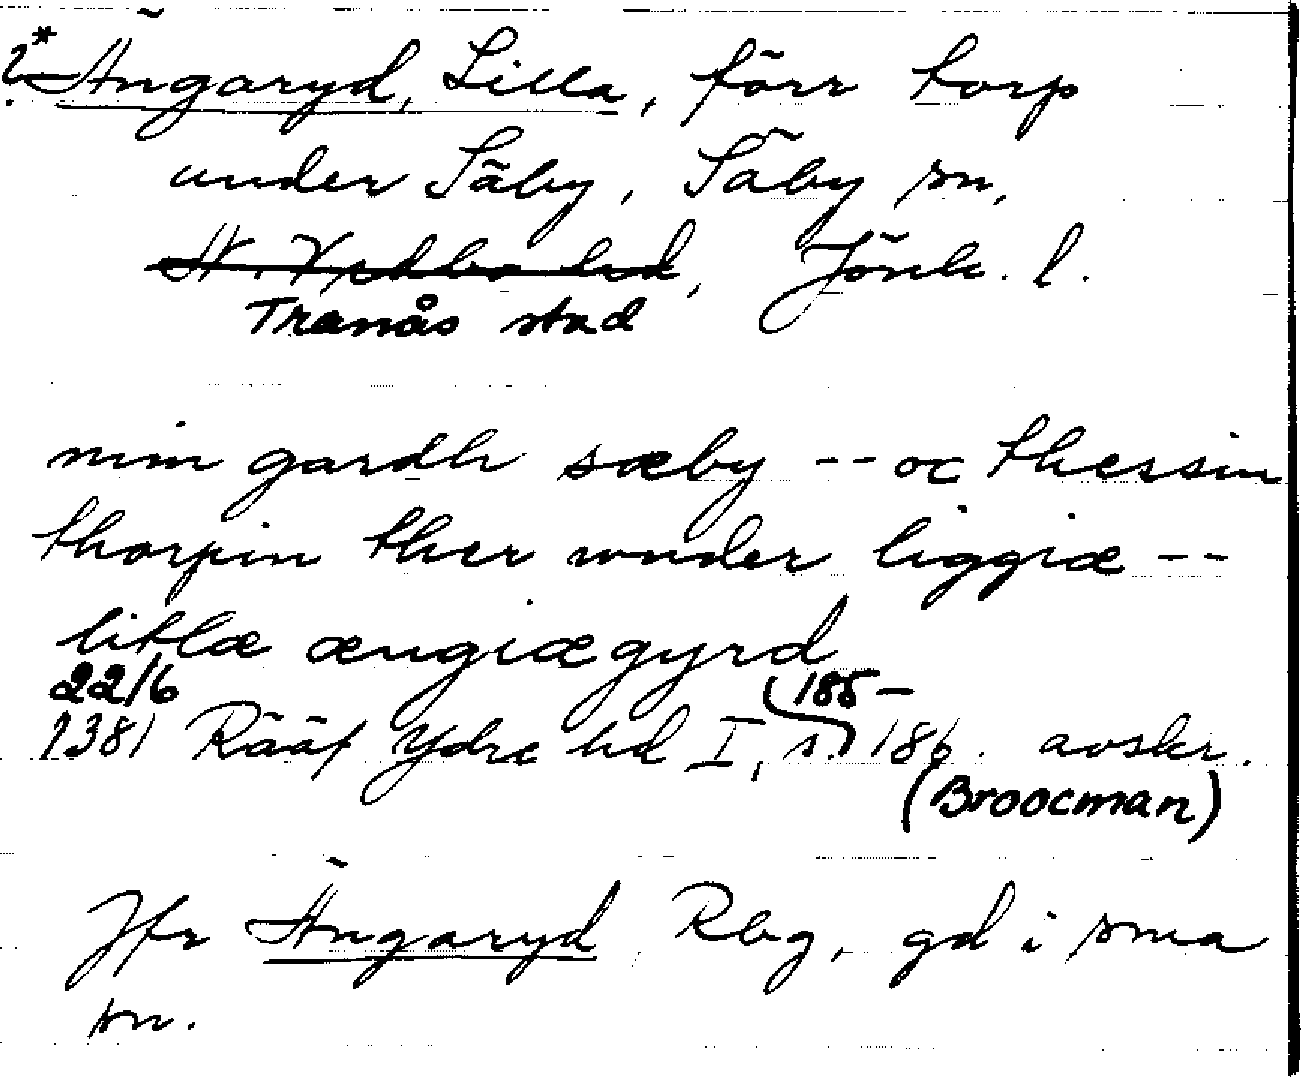 ?* Ängaryd, Lilla, förr torp
under Säby, Säby sn,
N. Vedbo hd, Jönk. l.
Tranås stad
min gardh sæby -- oc thessin
thorpin ther wnder liggiæ --
litlæ ængiægyrd
22/6 185-
1381 Rääf Ydre hd I, s. 186. avskr.
(Broocman)
Jfr Ängaryd Rbg, gd i sma
sn.